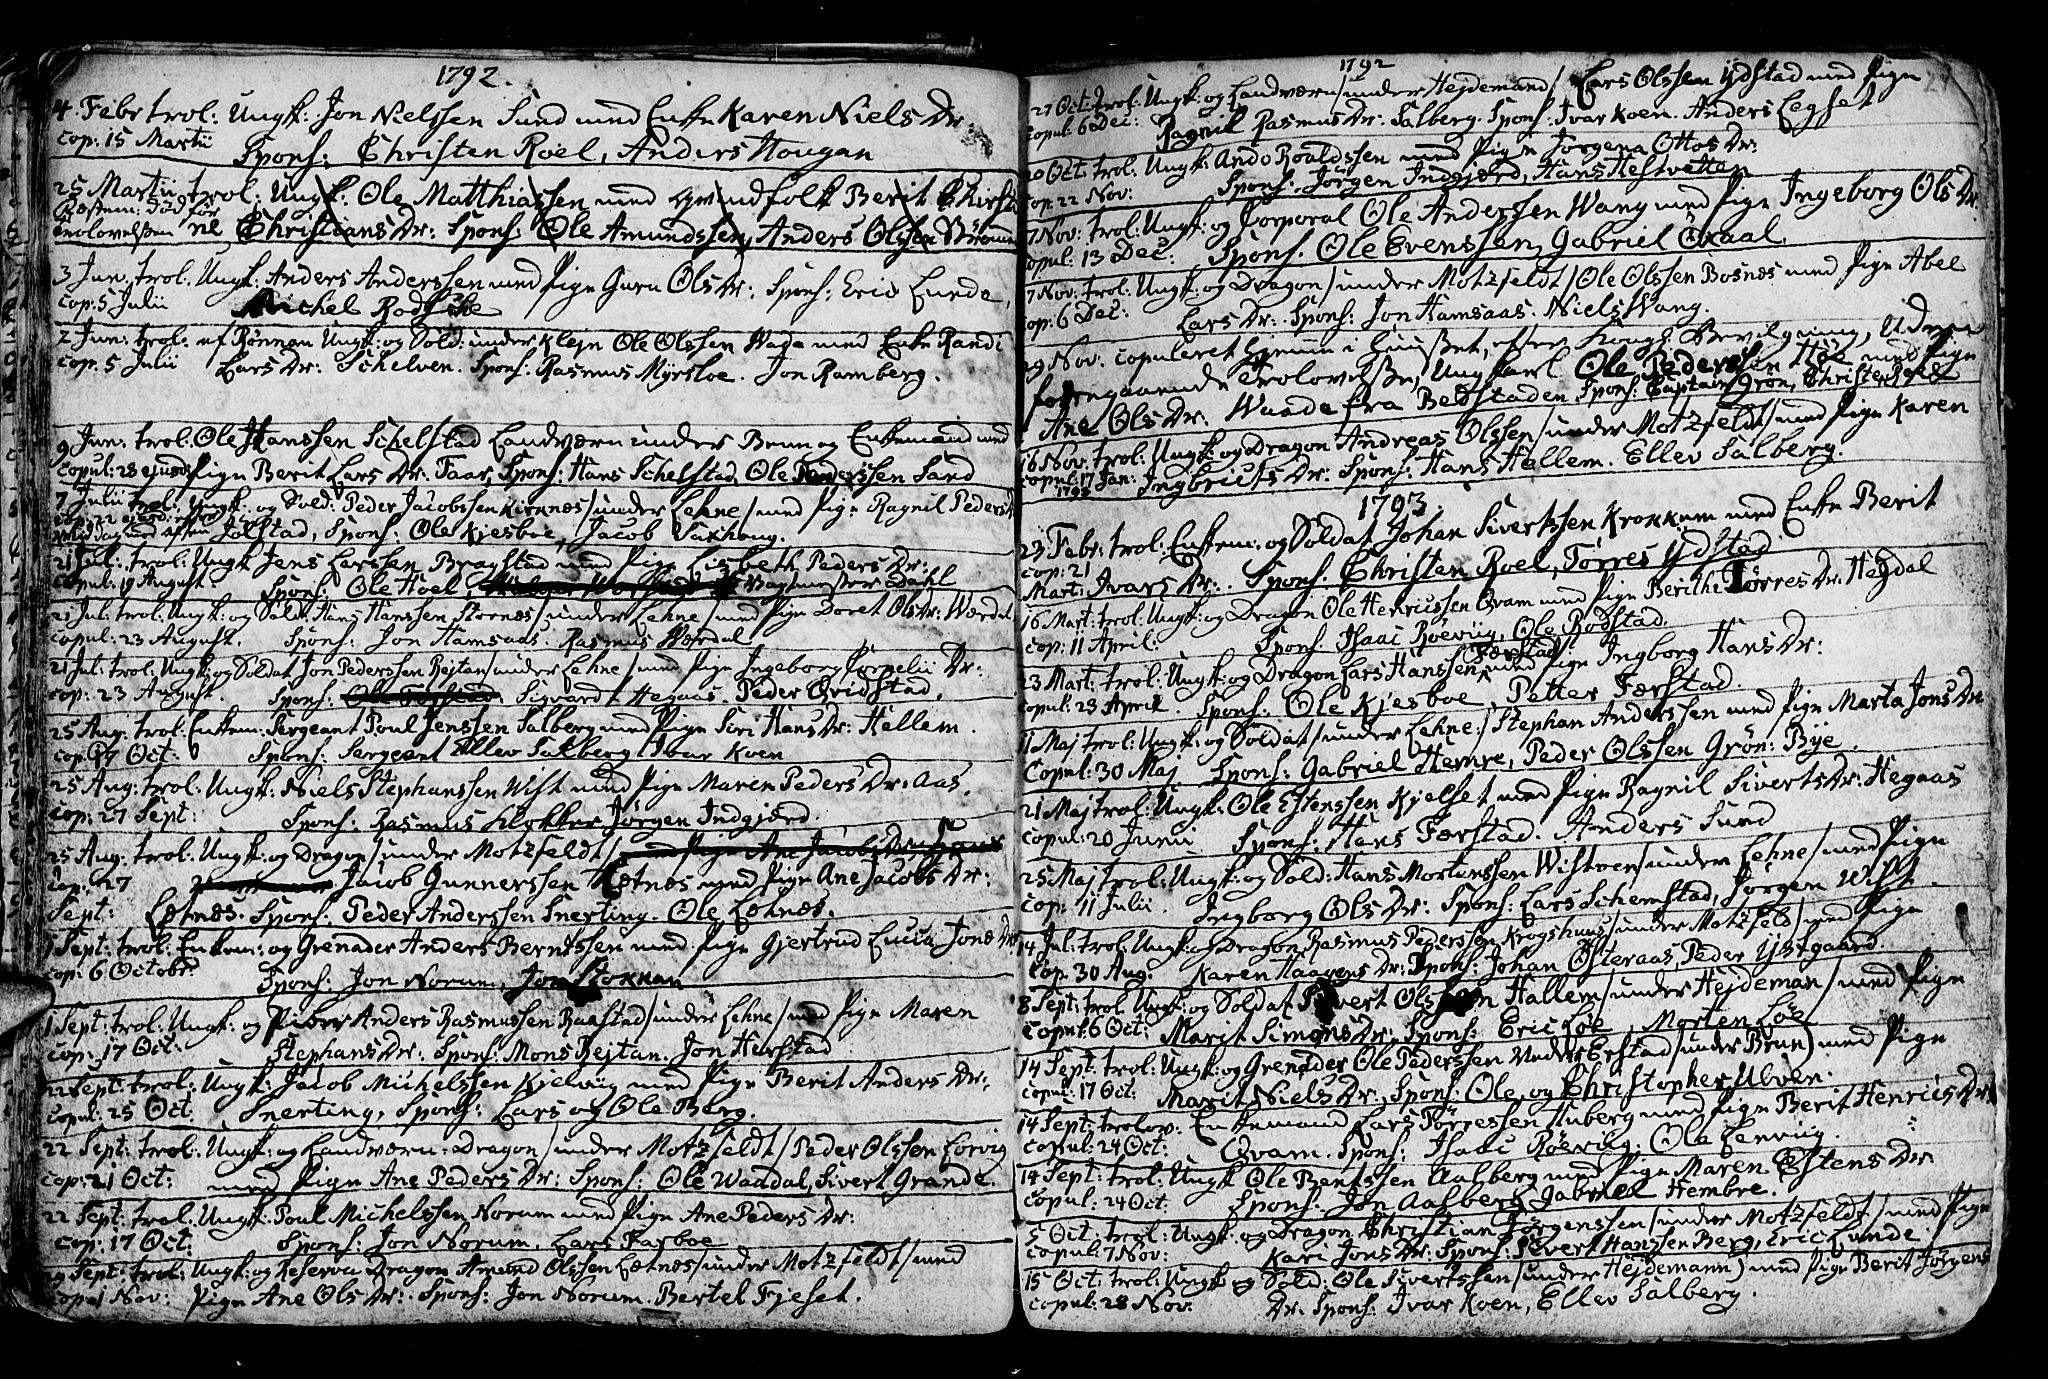 1792.
4 Febr trol: Ungk: Jon Nielssen Sund med Enke Karen Niels Dr.
cop: 15 Martii Spons: Christen Roel, Anders Hougan
25 Martii trol: Ungk: Ole Matthiassen med qvindfolk Berit Christi
Fæstem: død før Christians Dr: Spons: Ole Amundssen, Anders Olssen
trolovelsen
3 Jun. trol. Ungk: Anders Anderssen med Pige Guru Ols Dr: Spons: Eric Lunde,
cop: 5 Julii Michel Rodschie
2 Jun: trol. af Rönnau Ungk: og Sold: under Klejn Ole Olssen Wade med Enke Randi
cop: 5 Julii Lars Dr: Schelven. Spons: Rasmus Myrsloe. Jon Ramberg.
9 Jun: trol: Ole Hanssen Schelstad Landværn under Brun og Enkemand med
copul: 28 ejusd: Pige Berit Lars Dr: Faar, Spons: Hans Schelstad, Ole Pederssen Sand
7 Julii trol: Ungk: og Sold: Peder Jacobssen Kirknæs/under Lehne/med Pige Ragnil Peders
cop: 22 Jølstad, Spons: Ole Kjesboe, Jacob Saxhoug.
21 Jul: trol: Ungk Jens Larssen Bragstad med Pige Lisbeth Peders Dr:
copul: 19 August. Spons: Ole Hoel, Vagtmester Dahl
21 Jul: trol: Ungk: og Sold: Hans Hanssen Stornæs/under Lehne/med Pige Doret Ols Dr: Wærdal
copul: 23 August. Spons: Jon Hamsaas. Rasmus Wærdal
21 Jul: trol: Ungk: og Soldat Jon Pederssen Rejtan/under Lehne/med Pige Ingeborg Cornelii Dr:
cop: 23 August. Spons: Sigvardt Hegaas. Peder Qvidstad.
25 Aug: trol: Enkem: Sergeant Poul Jenssen Salberg med Pige Siri Hans Dr: Hellem.
cop: 17 Oct: Spons: Sergeant Ellev Salberg Ivar Koen
25 Aug: trol: Ungk: Niels Stephanssen Wist med Pige Maren Peders Dr: Aas.
cop: 27 Sept: Spons: Rasmus Klokker Jörgen Indgjærd.
25 Aug. trol: Ungk: og Dragon/under Motzfeldt/ med Pige Ane Jacobs Dr
cop: 27 Jacob Gunnerssen Lætnæs med Pige Ane Jacobs Dr:
Sept: Lætnæs. Spons: Peder Anderssen Snerting. Ole Lætnæs.
1 Sept: trol: Enkem: og Grenader Anders Berntssen med Pige Gjertrud Lucia Jons Dr
cop: 6 Octobr: Spons: Jon Norum, Jon Stoknan
1 Sept: trol: Ungk: og Piber Anders Rasmussen Raastad/under Lehne/med Pige Maren
cop: 17 Oct: Stephans Dr: Spons: Mons Rejtan. Jon Harstad
22 Sept: trol: Ungk: Jacob Michelssen Kjelviig med Pige Berit Anders Dr:
copul: 25 Oct: Snerting, Spons: Lars og Ole Berg.
22 Sept: trol: Ungk: og Landværn-Dragon/under Motzfeldt/Peder Olssen Lorvig
cop: 21 Oct: med Pige Ane Peders Dr: Spons: Ole Waddal, Sivert Grande.
22 Sept: trol: Ungk: Poul Michelssen Norum med Pige Ane Peders Dr:
cop: 17 Oct: Spons: Jon Norum, Lars Farboe
29 Sept: trol: Ungk: og Reserve Dragon Amund Olssen Lætnæs/under Motzfeldt/med
cop: 1 Nov: Pige Ane Ols Dr: Spons: Jon Norum. Bertel Fjeset.
1792
27 Oct: trol: Ungk: og Landværn/under Hejdemand/Lars Olssen Ydstad med Pige
copul: 6 Dec: Ragnil Rasmus Dr: Salberg. Spons: Ivar Koen. Anders Legset
20 Oct: trol: Ungk: Ando Roaldssen med Pige Jörgena Ottos Dr:
cop: 22 Nov: Spons: Jörgen Indgjærd, Hans Hestvetten
7 Nov: trol: Ungk: og Corporal Ole Anderssen Wang med Pige Ingeborg Ols Dr.
copul: 13 Dec: Spons. Ole Evenssen, Gabriel Oxaal.
7 Nov: trol: Ungk: og Dragon/under Motzfeldt/Ole Olssen Bosnæs med Pige Abel
cop: 6 Dec: Lars Dr: Spons: Jon Hamsaas. Niels Wang.
29 Nov. copuleret hjemme i Huuset, efter Kongl. Bevilgning, Uden
foregaaende Trolovelse, Ungkarl Ole Pederssen Höe med Pige
Ane Ols Dr: Waade fra Bedstaden Spons: Captain Grön, Christen Roel
16 Nov: trol: Ungk: og Dragon Andreas Olssen/under Motzfeldt/med Pige Karen
copul: 17 Jan: 1793 Ingbricts Dr: Spons: Hans Hellem. Ellev Salberg.
1793.
23 Febr: trol: Enkem: og Soldat Johan Sivertssen Krokkum med Enke Berit
cop: 21 Mart: Ivars Dr: Spons: Christen Roel, Törres Ydstad
16 Mart: trol: Ungk: og Dragon Ole Henricssen Qvam med Pige Berithe Törres Dr: Hegdal
cop: 11 April: Spons: Isaac Röeviig, Ole Rodstad.
23 Mart: trol: Ungk: og Dragon Lars Hanssen Færstad med Pige Ingborg Hans Dr:
copul: 23 April Spons: Ole Kjesboe, Petter Færstad.
11 Maj trol: Ungk: og Soldat/under Lehne:/Stephan Anderssen med Pige Marta Jons Dr
Copul: 30 Maj Spons: Gabriel Hemre, Peder Olssen Grön: Bye.
21 Maj trol: Ungk: Ole Estenssen Kjelset med Pige Ragnil Siverts Dr: Hegaas
copul: 20 Junii Spons: Hans Færstad. Anders Sund
25 Maj trol: Ungk: og Sold: Hans Mortenssen Wistven/under Lehne/med Pige
cop: 11 Julii. Ingborg Ols Dr: Spons: Lars Schemstad, Jörgen Wist.
14 Jul: trol: Ungk: og Dragon Rasmus Pederssen Krogshuus/under Motzfeld/med Pige
Cop. 30 Aug: Karen Haagens Dr: Spons: Johan Østeraas, Peder Ystgaard.
8 Sept: trol Ungk: og Soldat Sivert Olssen Hallem/under Hejdeman/med Pige
copul: 6 Oct: Marit Simons Dr: Spons: Eric Løe, Morten Løe
14 Sept: trol: Ungk: og Grenader Ole Pederssen /under Brun) med Pige
copul: 17 Oct Marit Niels Dr, Spons: Ole, og Christopher Ulven.
14 Sept: trolov: Enkemand Lars Törressen Huberg med Pige Berit Henrics Dr
copul: 24 Oct: Qvam. Spons: Isaac Röeviig. Ole Lenviig.
14 Sept: trol: Ungk Ole Bentssen Aalberg med Pige Maren Estens Dr
copul: 24 Oct Spons: Jon Aalberg Gabriel Hembre.
5 Oct: trol: Ungk: og Dragon Christian Jörgenssen/under Motzfeldt/med Pige
copul: 7 Nov: Kari Jons Dr: Spons: Sivert Hanssen Berg, Eric Lunde
15 Oct: trol: Ungk: og Sold: Ole Sivertssen/under Hejdemann) med Pige Berit Jörgens
copul: 28 Nov: Dr. Spons: Ivar Koen, Ellev Salberg.